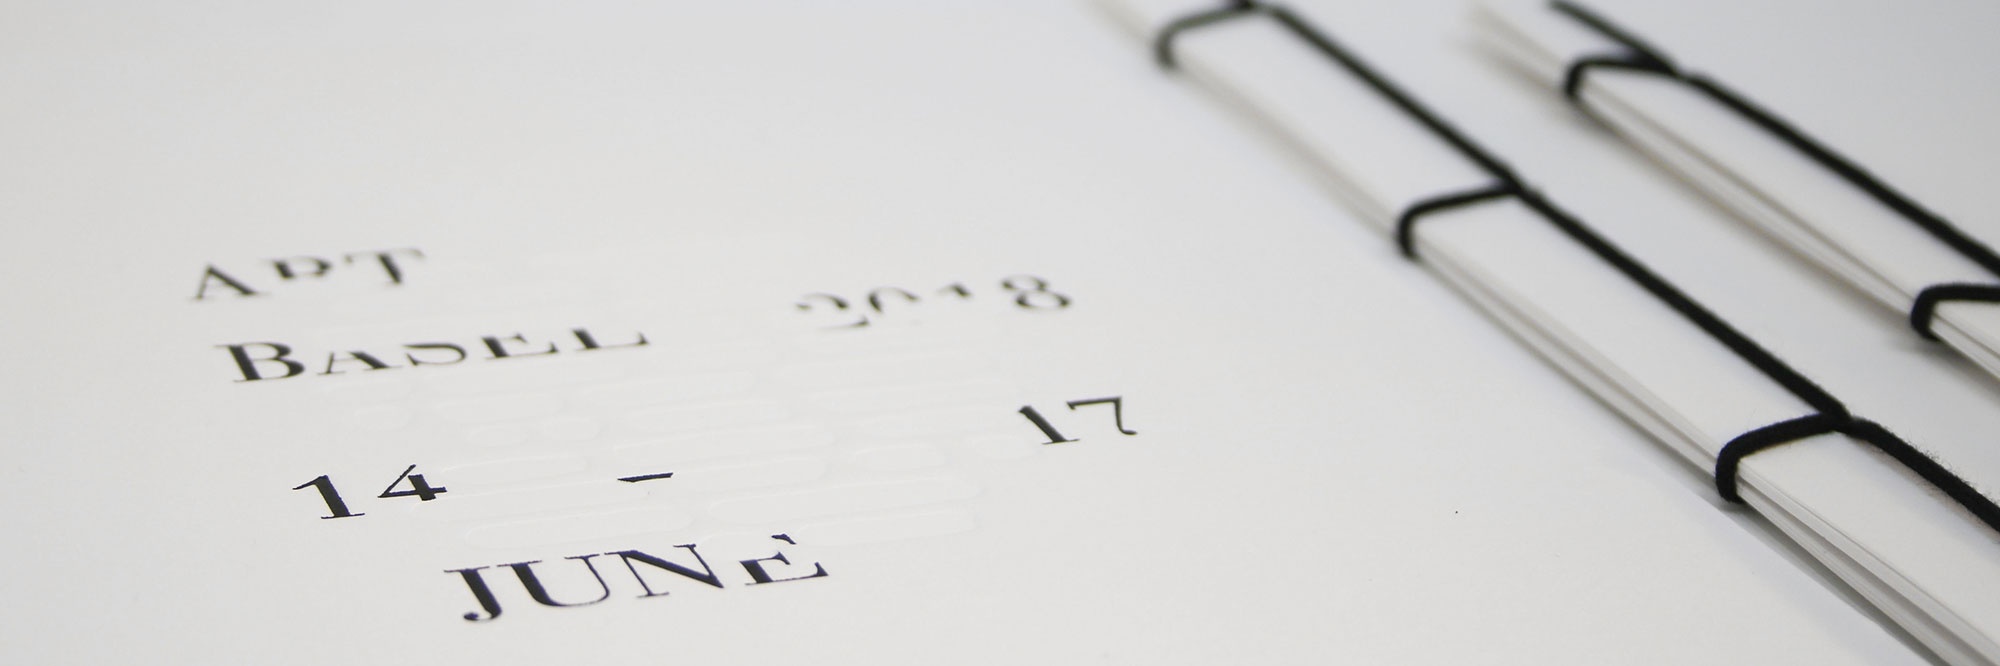 ART
BASEL 2018
14 - 17
JUNE